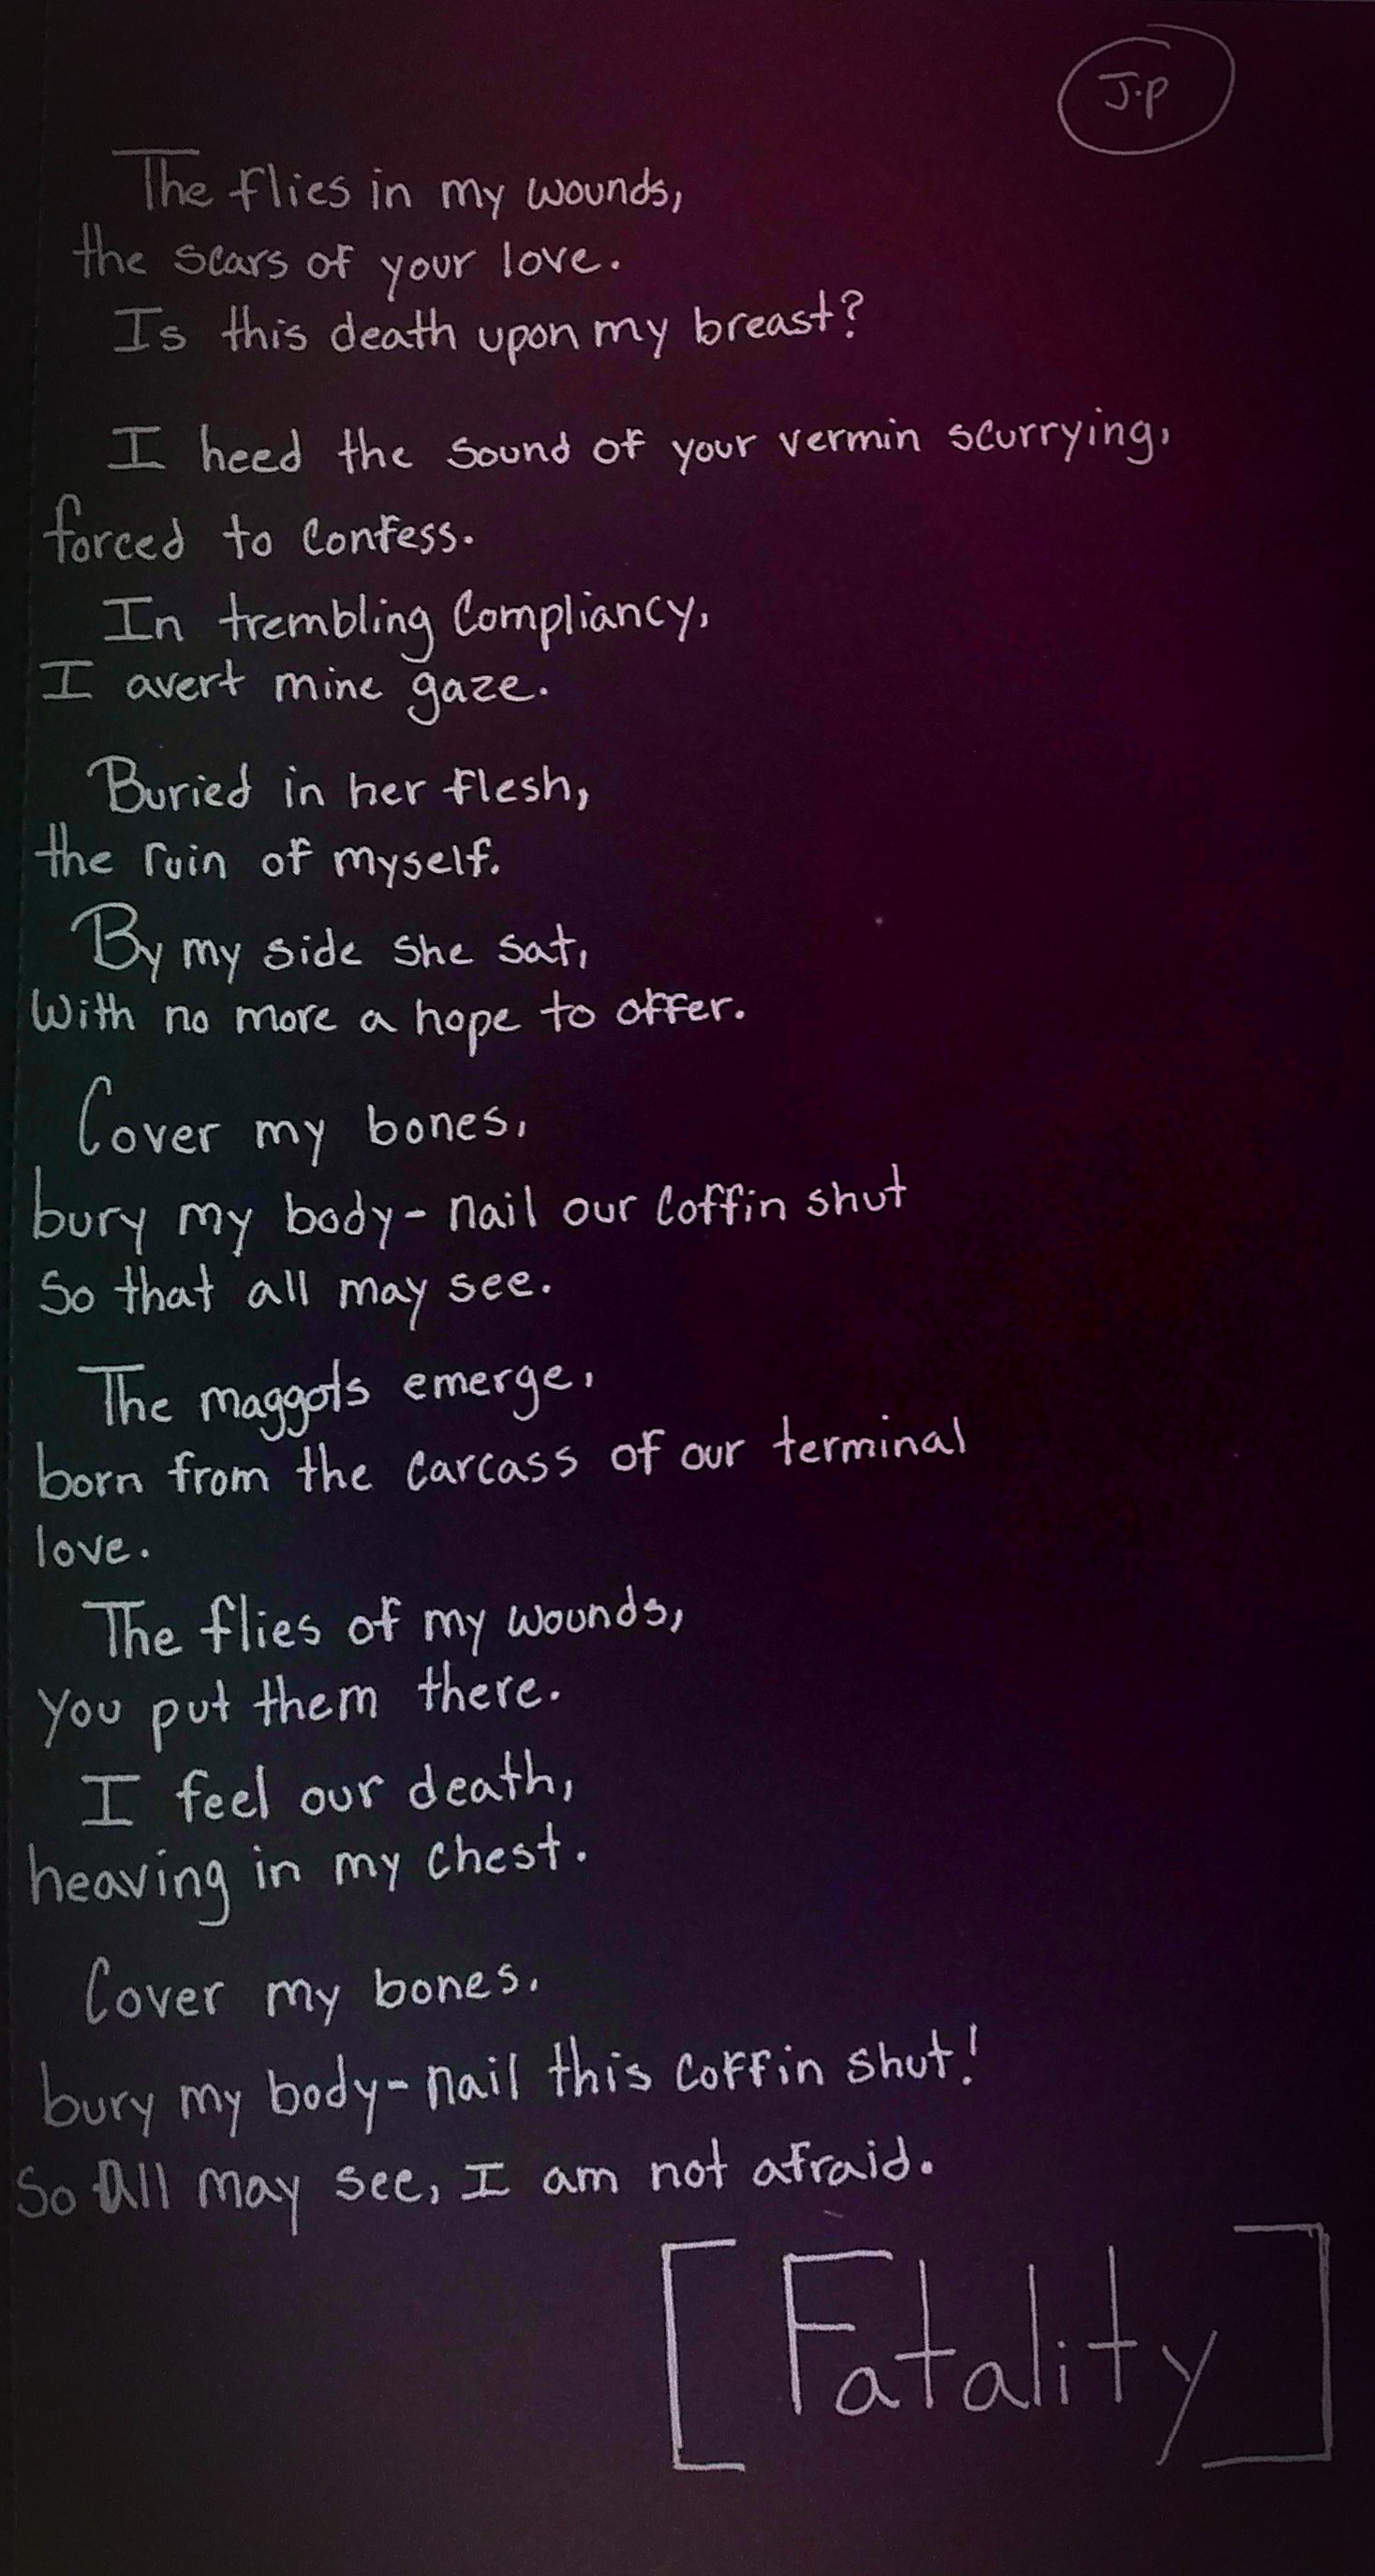 J.P
The flies in my wounds,
the scars of your love.
Is this death upon my breast?
I heed the sound of your vermin scurrying,
forced to confess.
In trembling compliancy,
I avert mine gaze.
Buried in her flesh,
the ruin of myself.
By my side she sat,
With no more a hope to offer.
Cover my bones,
bury my body - nail our coffin shut
So that all may see.
The maggots emerge,
born from the carcass of our terminal
love.
The flies of my wounds,
you put them there.
I feel our death,
heaving in my chest.
Cover my bones,
bury my body - nail this coffin shut!
So All may see, I am not afraid.
[Fatality]